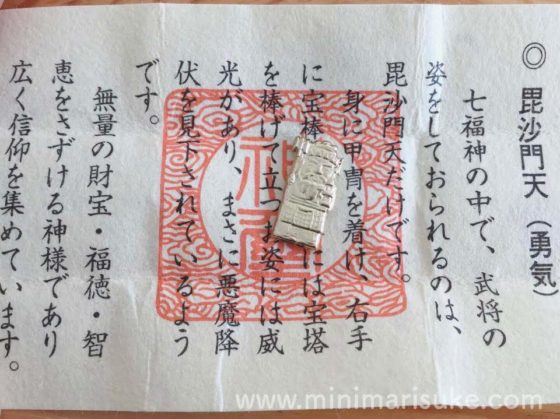 ◎ 毘沙門天(勇気)
七福神の中で、武将の
姿をしておられるのは、
毘沙門天だけです。
身に甲冑を着け、右手
に宝棒 には宝塔
を捧げて立つお姿には威
光があり、まさに悪魔降
伏を見下されているよう
です。
無量の財宝・福徳・智
恵をさずける神様であり
広く信仰を集めています。
www.minimarisuke.com